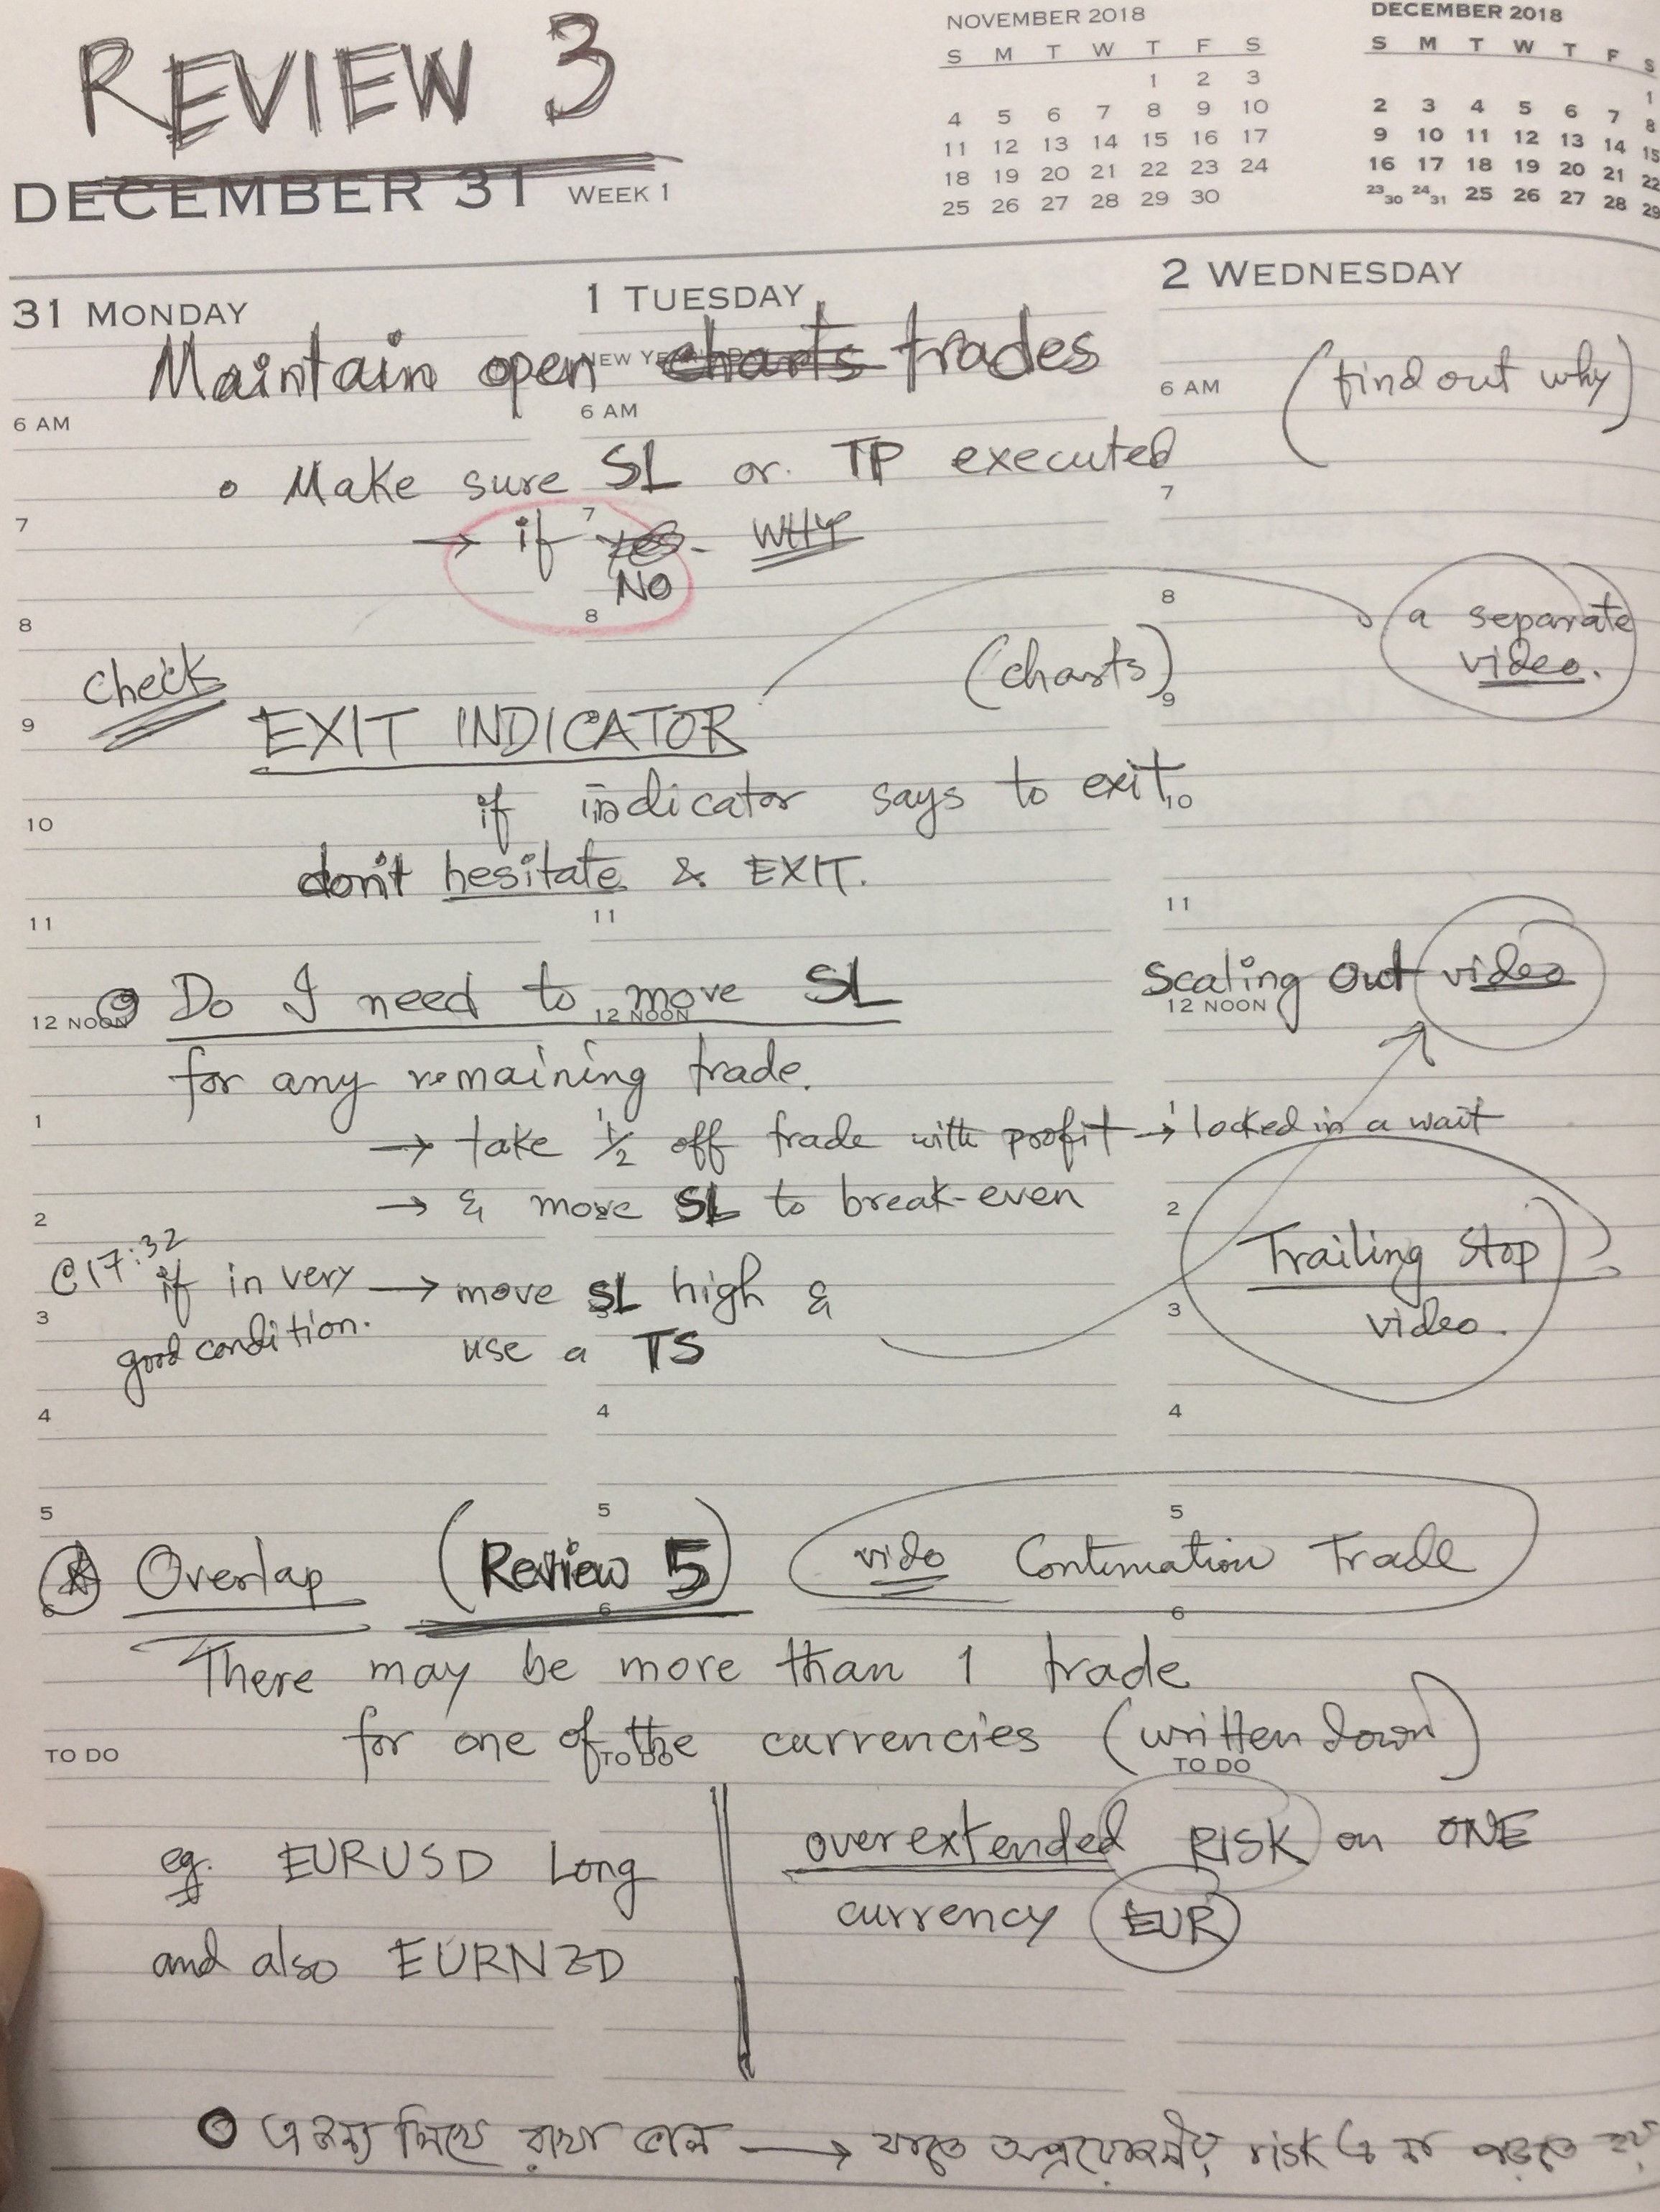 REVIEW 3
NOVEMBER 2018
S M T W T F S
1 2 3
4 5 6 7 8 9 10
11 12 13 14 15 16 17
18 19 20 21 22 23 24
25 26 27 28 29 30
DECEMBER 2018
S M T W T F S
1
2 3 4 5 6 7 8
9 10 11 12 13 14 15
16 17 18 19 20 21 22
23 30 24 31 25 26 27 28 29
DECEMBER 31 WEEK 1
31 MONDAY 1 TUESDAY 2 WEDNESDAY
NEW YE
Maintain open charts trades (find out why)
6 AM 6 AM 6 AM
Make sure SL or TP executed
7 7 7
→ if yes - WHY
NO
8 8 8
a separate
video.
check (charts)
9 9
EXIT INDICATOR
if indicator says to exit
10 10
don't hesitate & EXIT.
11 11 11
Do I need to move SL Scaling out video
12 NOON 12 NOON 12 NOON
for any remaining trade.
1 1 1
→ take 1/2 off trade with profit → locked in a wait
→ & move SL to break-even
2 2
@17:32 if in very → move SL high &
good condition. use a TS
3 3
Trailing Stop
video.
4 4 4
5 5 5
Overlap (Review 5) video Continuation Trade
6 6 6
There may be more than 1 trade
for one of the currencies (written down)
TO DO TO DO TO DO
eg. EURUSD Long
and also EURNZD
overextended RISK on ONE
currency EUR
এ জন্য লিখে রাখা ভাল → যাতে অপ্রয়োজনীয় risk এ না পড়তে হয়